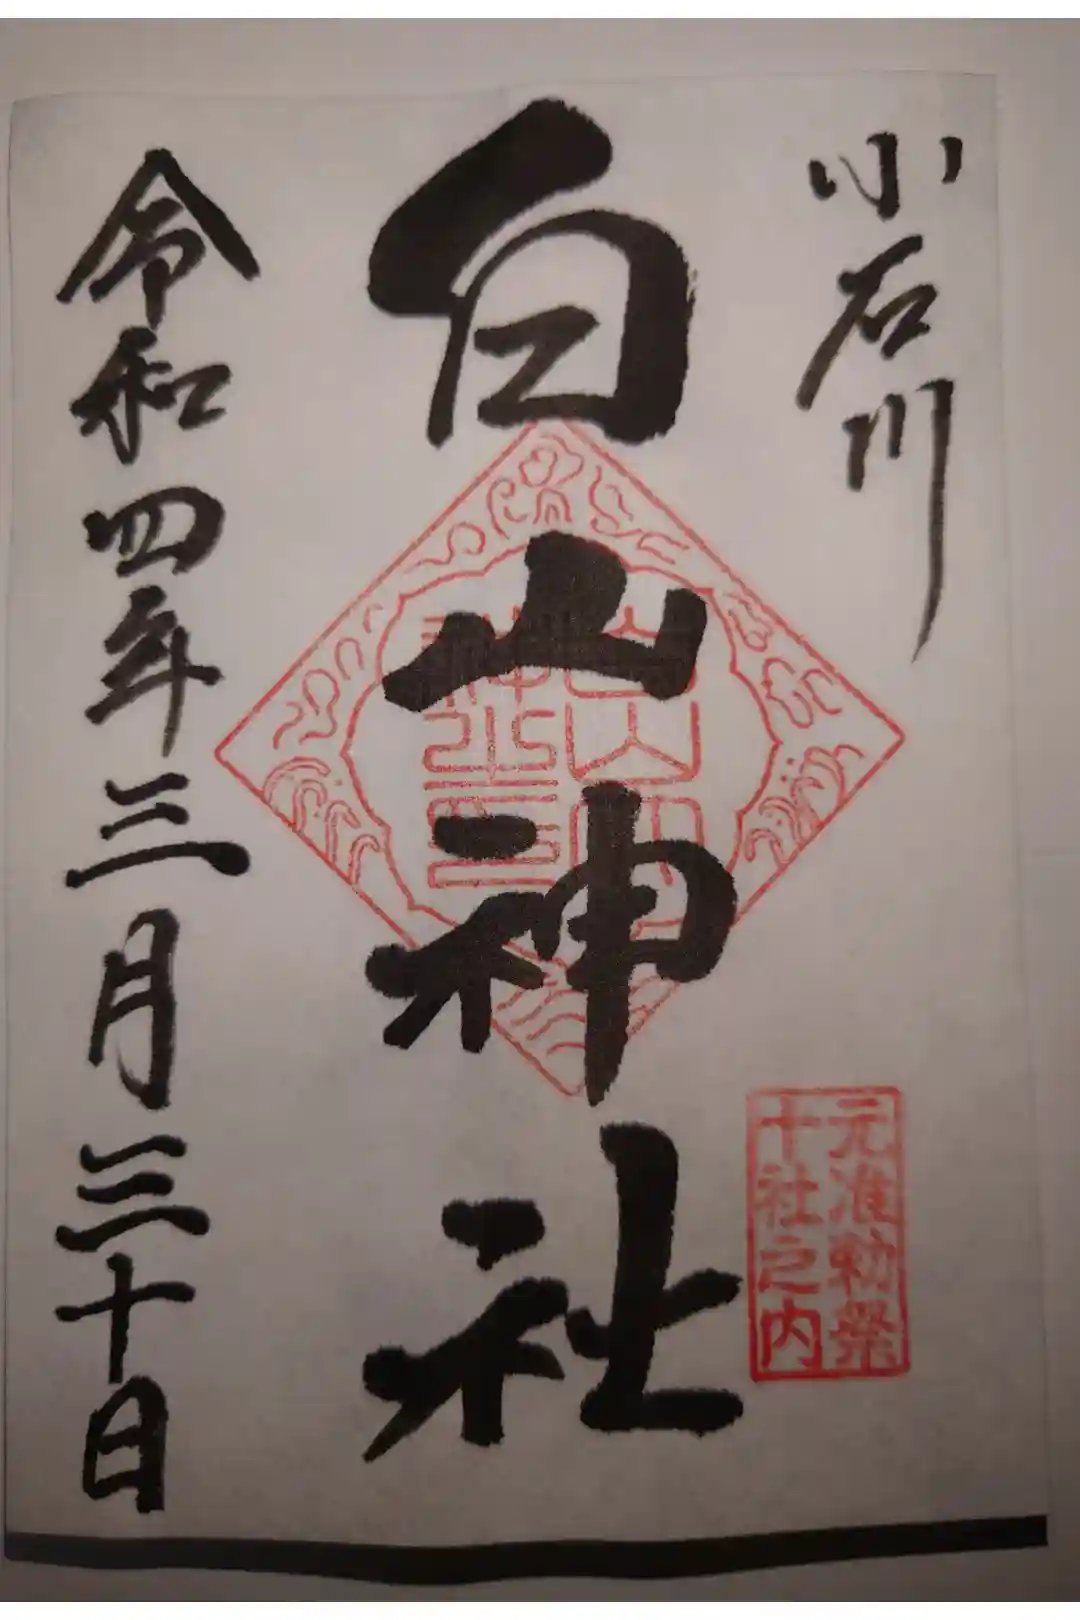 小石川
元准勅祭
十社之内
白山神社
令和四年三月三十日